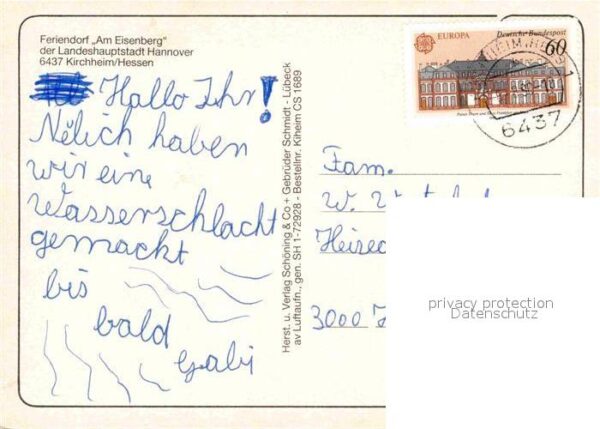 Feriendorf „Am Eisenberg"
der Landeshauptstadt Hannover
6437 Kirchheim/Hessen
Hallo Ihr!
Nelich haben
wir eine
Wasserschlacht
gemackt
bis
bald
Gabi
Herst. u. Verlag Schöning & Co + Gebrüder Schmidt - Lübeck
av Luftaufn., gen. SH 1-72928 - Bestellnr. Kiheim CS 1689
EUROPA
Deutsche Bundespost
60
6437
Fam.
W.
3000
privacy protection
Datenschutz